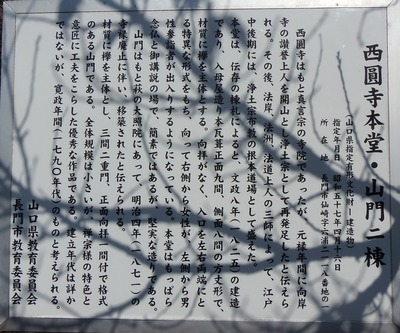 西圓寺本堂・山門二棟
山口県指定有形文化財（建造物）
指定年月日　昭和五十七年四月十六日
所在地　長門市仙崎字六浦一二一八番地の一
西圓寺はもと真言宗の寺院であったが、元禄年間に向岸
寺の讃誉上人を開山とし浄土宗として再発足したと伝えら
れる。その後、法岸、法洲、法道上人の三師によって、江戸
中後期には、浄土宗布教の根本道場として盛えた。
本堂は、伝存の棟札によると、文政八年（一八二五）の建造
であり、入母屋造り本瓦葺正面九間、側面八間の方丈形で、
材質に欅を主体とする。向拝がなく、入口を左右両端にと
る特異な形式をもち、向って右側から女性が、左側から男
性参詣者が出入りするようになっている。本堂はもっぱら
念仏と御講説の場で、簡素ではあるが、堅実な造りである。
山門はもと萩の大照院にあって、明治四年（一八七一）の
寺禄廃止に伴い、移築されたと伝えられる。
材質に欅を主体とし、三間二重門、正面向拝一間付で格式
のある山門である。全体規模は小さいが、禅宗様の特色と
意匠に工夫をこらした優秀な作品である。建立年代は詳か
ではないが、寛政年間（一七九〇年代）のものと考えられる。
山口県教育委員会
長門市教育委員会